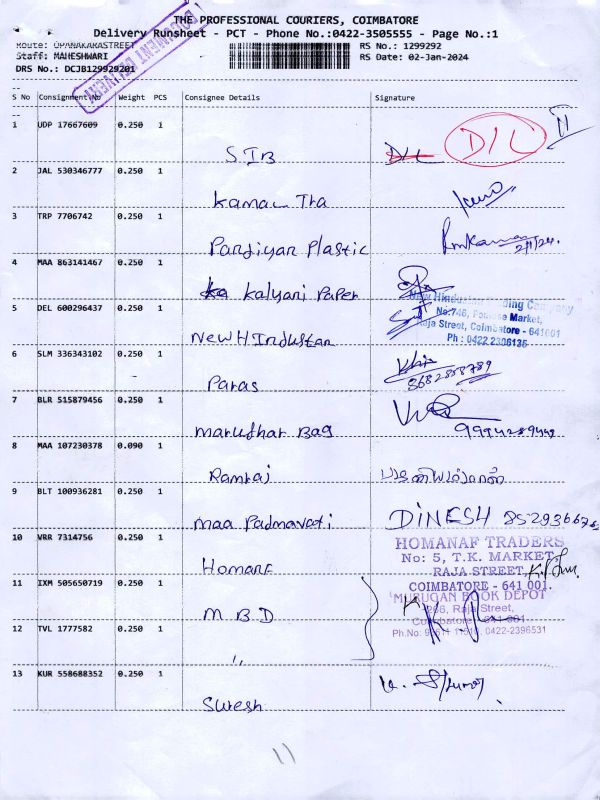 THE PROFESSIONAL COURIERS, COIMBATORE
Delivery Runsheet - PCT - Phone No.:0422-3505555 - Page No.:1
Route: OPANAKARASTREET RS No.: 1299292
Staff: MAHESHWARI RS Date: 02-Jan-2024
DRS No.: DCJB129929201
DOCUMENT DELIVERY
S No Consignment No Weight PCS Consignee Details Signature
1 UDP 17667609 0.250 1
SIB D/L D/L 11
2 JAL 530346777 0.250 1
Kamal Tra
3 TRP 7706742 0.250 1
Pandiyan Plastic 2/1/24.
4 MAA 863141467 0.250 1
Kalyani Paper
New Hindustan Trading Company
5 DEL 600296437 0.250 1
No:746, Market,
Raja Street, Coimbatore - 641001
Ph : 0422 2306135
New HIndustan
6 SLM 336343102 0.250 1
Paras
7 BLR 515879456 0.250 1
Marudhar Bag
8 MAA 107230378 0.090 1
Ramraj
9 BLT 100936281 0.250 1
Maa Padmavati DINESH
10 VRR 7314756 0.250 1
HOMANAF TRADERS
No: 5, T.K. MARKET,
RAJA STREET,
COIMBATORE - 641 001.
Homanf
11 IXM 505650719 0.250 1
MURUGAN BOOK DEPOT
266, Raja Street,
Coimbatore - 641 001
Ph.No: 0422-2396531
M B D
12 TVL 1777582 0.250 1
"
13 KUR 558688352 0.250 1
Suresh
11